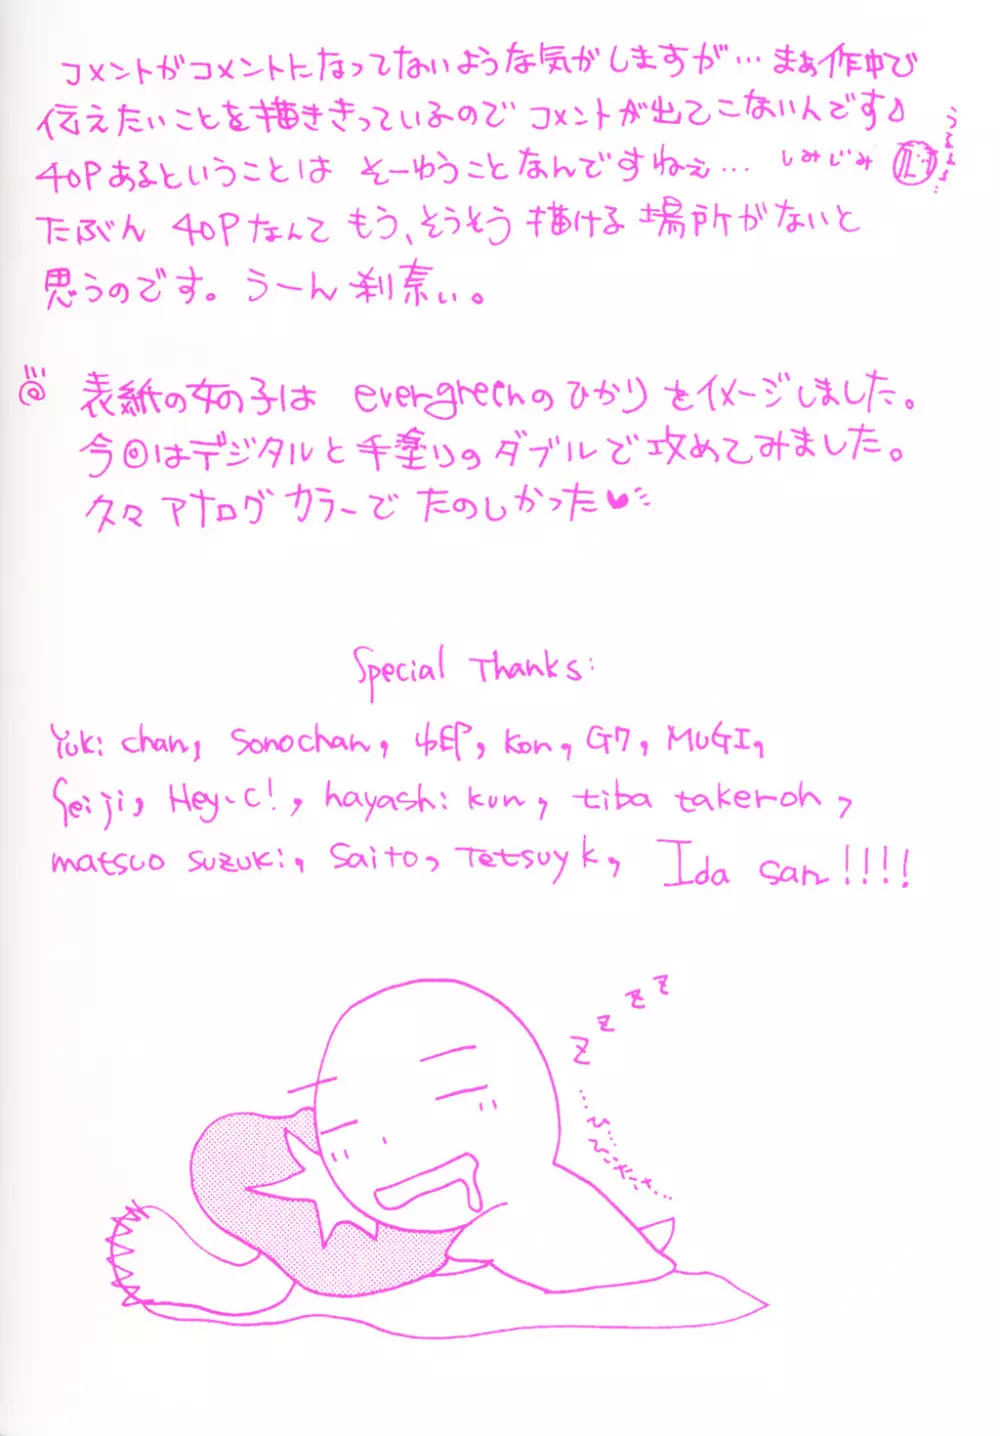 コメントがコメントになってないような気がしますが… まぁ作中で
伝えたいことを描ききっているのでコメントが出てこないんです♪
40Pあるということは そーゆうことなんですねぇ… しみじみ
うるるる…
たぶん 40Pなんて もう、そうそう描ける場所がないと
思うのです。うーん 刹那い。
表紙の女の子は evergreenのひかりをイメージしました。
今回はデジタルと手塗りのダブルで攻めてみました。
久々アナログカラーでたのしかった♥
Special Thanks:
Yuki chan, Sonochan, Kon, G7, MUGI,
Seiji, Hey-C!, hayashi kun, tiba takeroh,
matsuo suzuki, Saito, Tetsuyk, Ida san!!!!
z z z z z